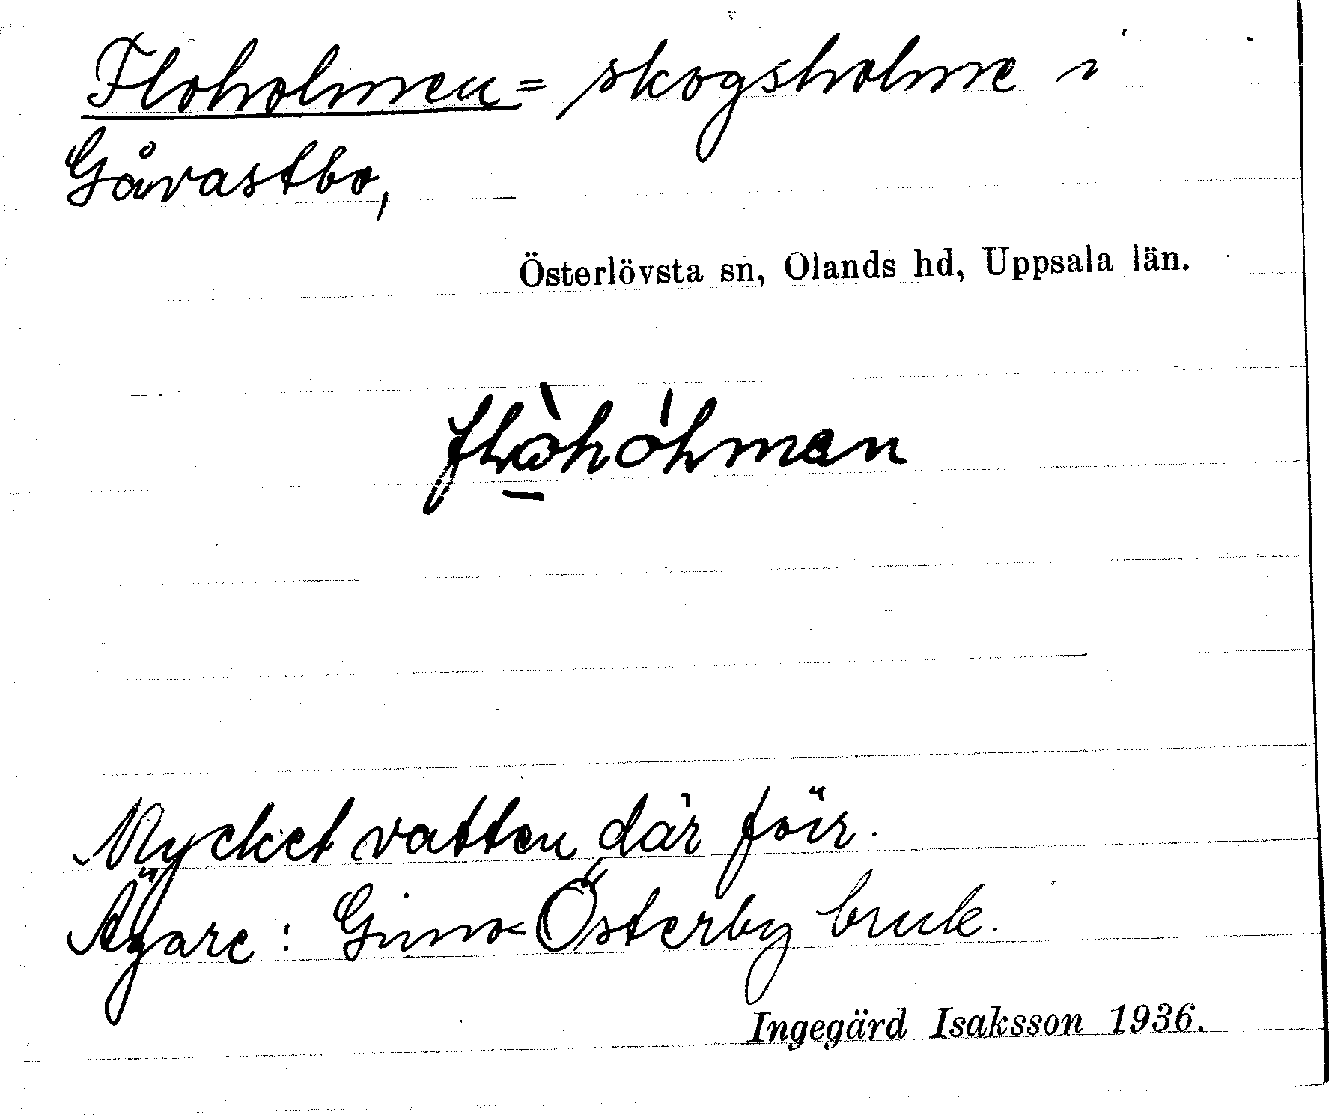 Floholmen = skogsholme i
Gåvastbo,
Österlövsta sn, Olands hd, Uppsala län.
Mycket vatten där förr.
Ägare: Gimo-Österby bruk.
Ingegärd Isaksson 1936.